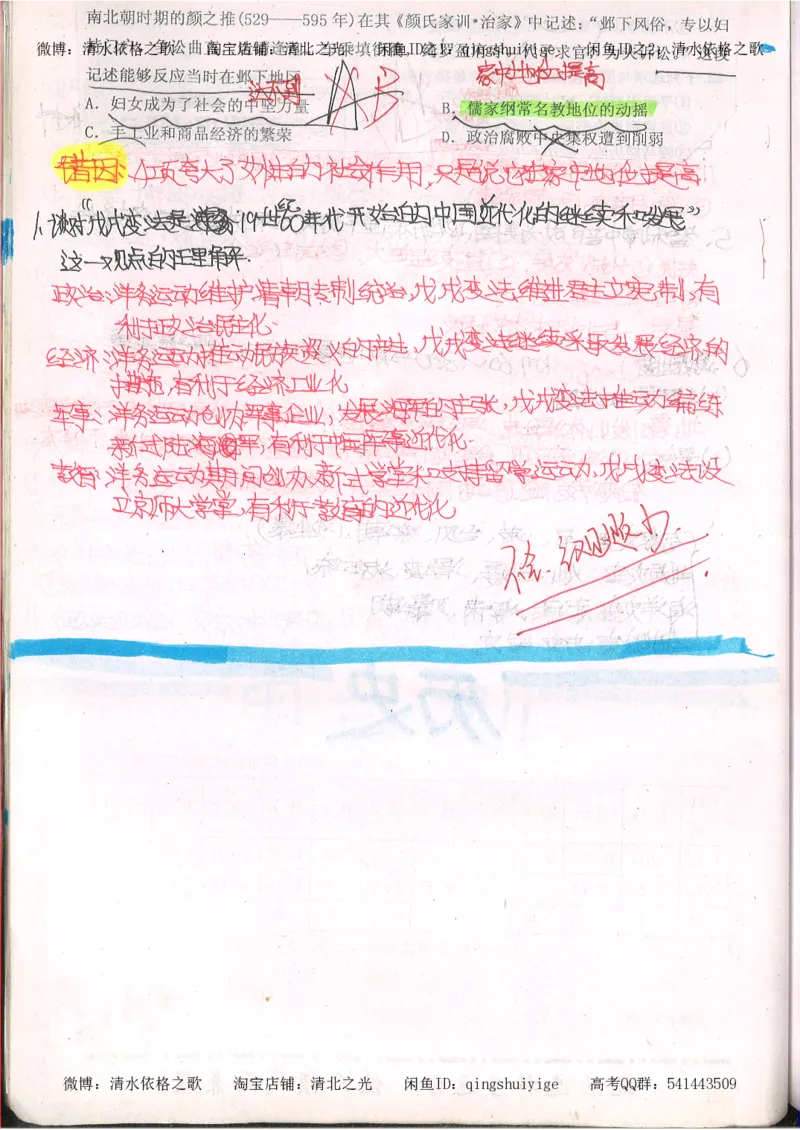 南北朝时期的颜之推(529——595年)在其《颜氏家训•治家》中记述:“邺下风俗，专以妇
微博：清水依格之歌 淘宝店铺：清北之光 闲鱼ID之1：qingshuiyige 闲鱼ID之2：清水依格之歌
记述能够反应当时在邺下地区
家中地位提高
达不到
A. 妇女成为了社会的中坚力量
B
B. 儒家纲常名教地位的动摇
C. 手工业和商品经济的繁荣
D. 政治腐败中央集权遭到削弱
错因：A项夸大了女性的社会作用，只是说它在家中地位提高
1.谈对“戊戌变法是19世纪60年代开始的中国近代化的继续和发展”
这一观点的理解.
政治：洋务运动维护清朝专制统治，戊戌变法维进君主立宪制，有
利于政治民主化.
经济：洋务运动推动民族资义的产生，戊戌变法继续采取发展经济的
措施，有利于经济工业化
军事：洋务运动创办军事企业，发展海军的主张，戊戌变法推动编练
新式陆海军，有利于中国军事近代化.
教育：洋务运动期间创办新式学堂和支持留学运动，戊戌变法设
立京师大学堂，有利于教育的近代化
微博：清水依格之歌 淘宝店铺：清北之光 闲鱼ID：qingshuiyige 高考QQ群：541443509